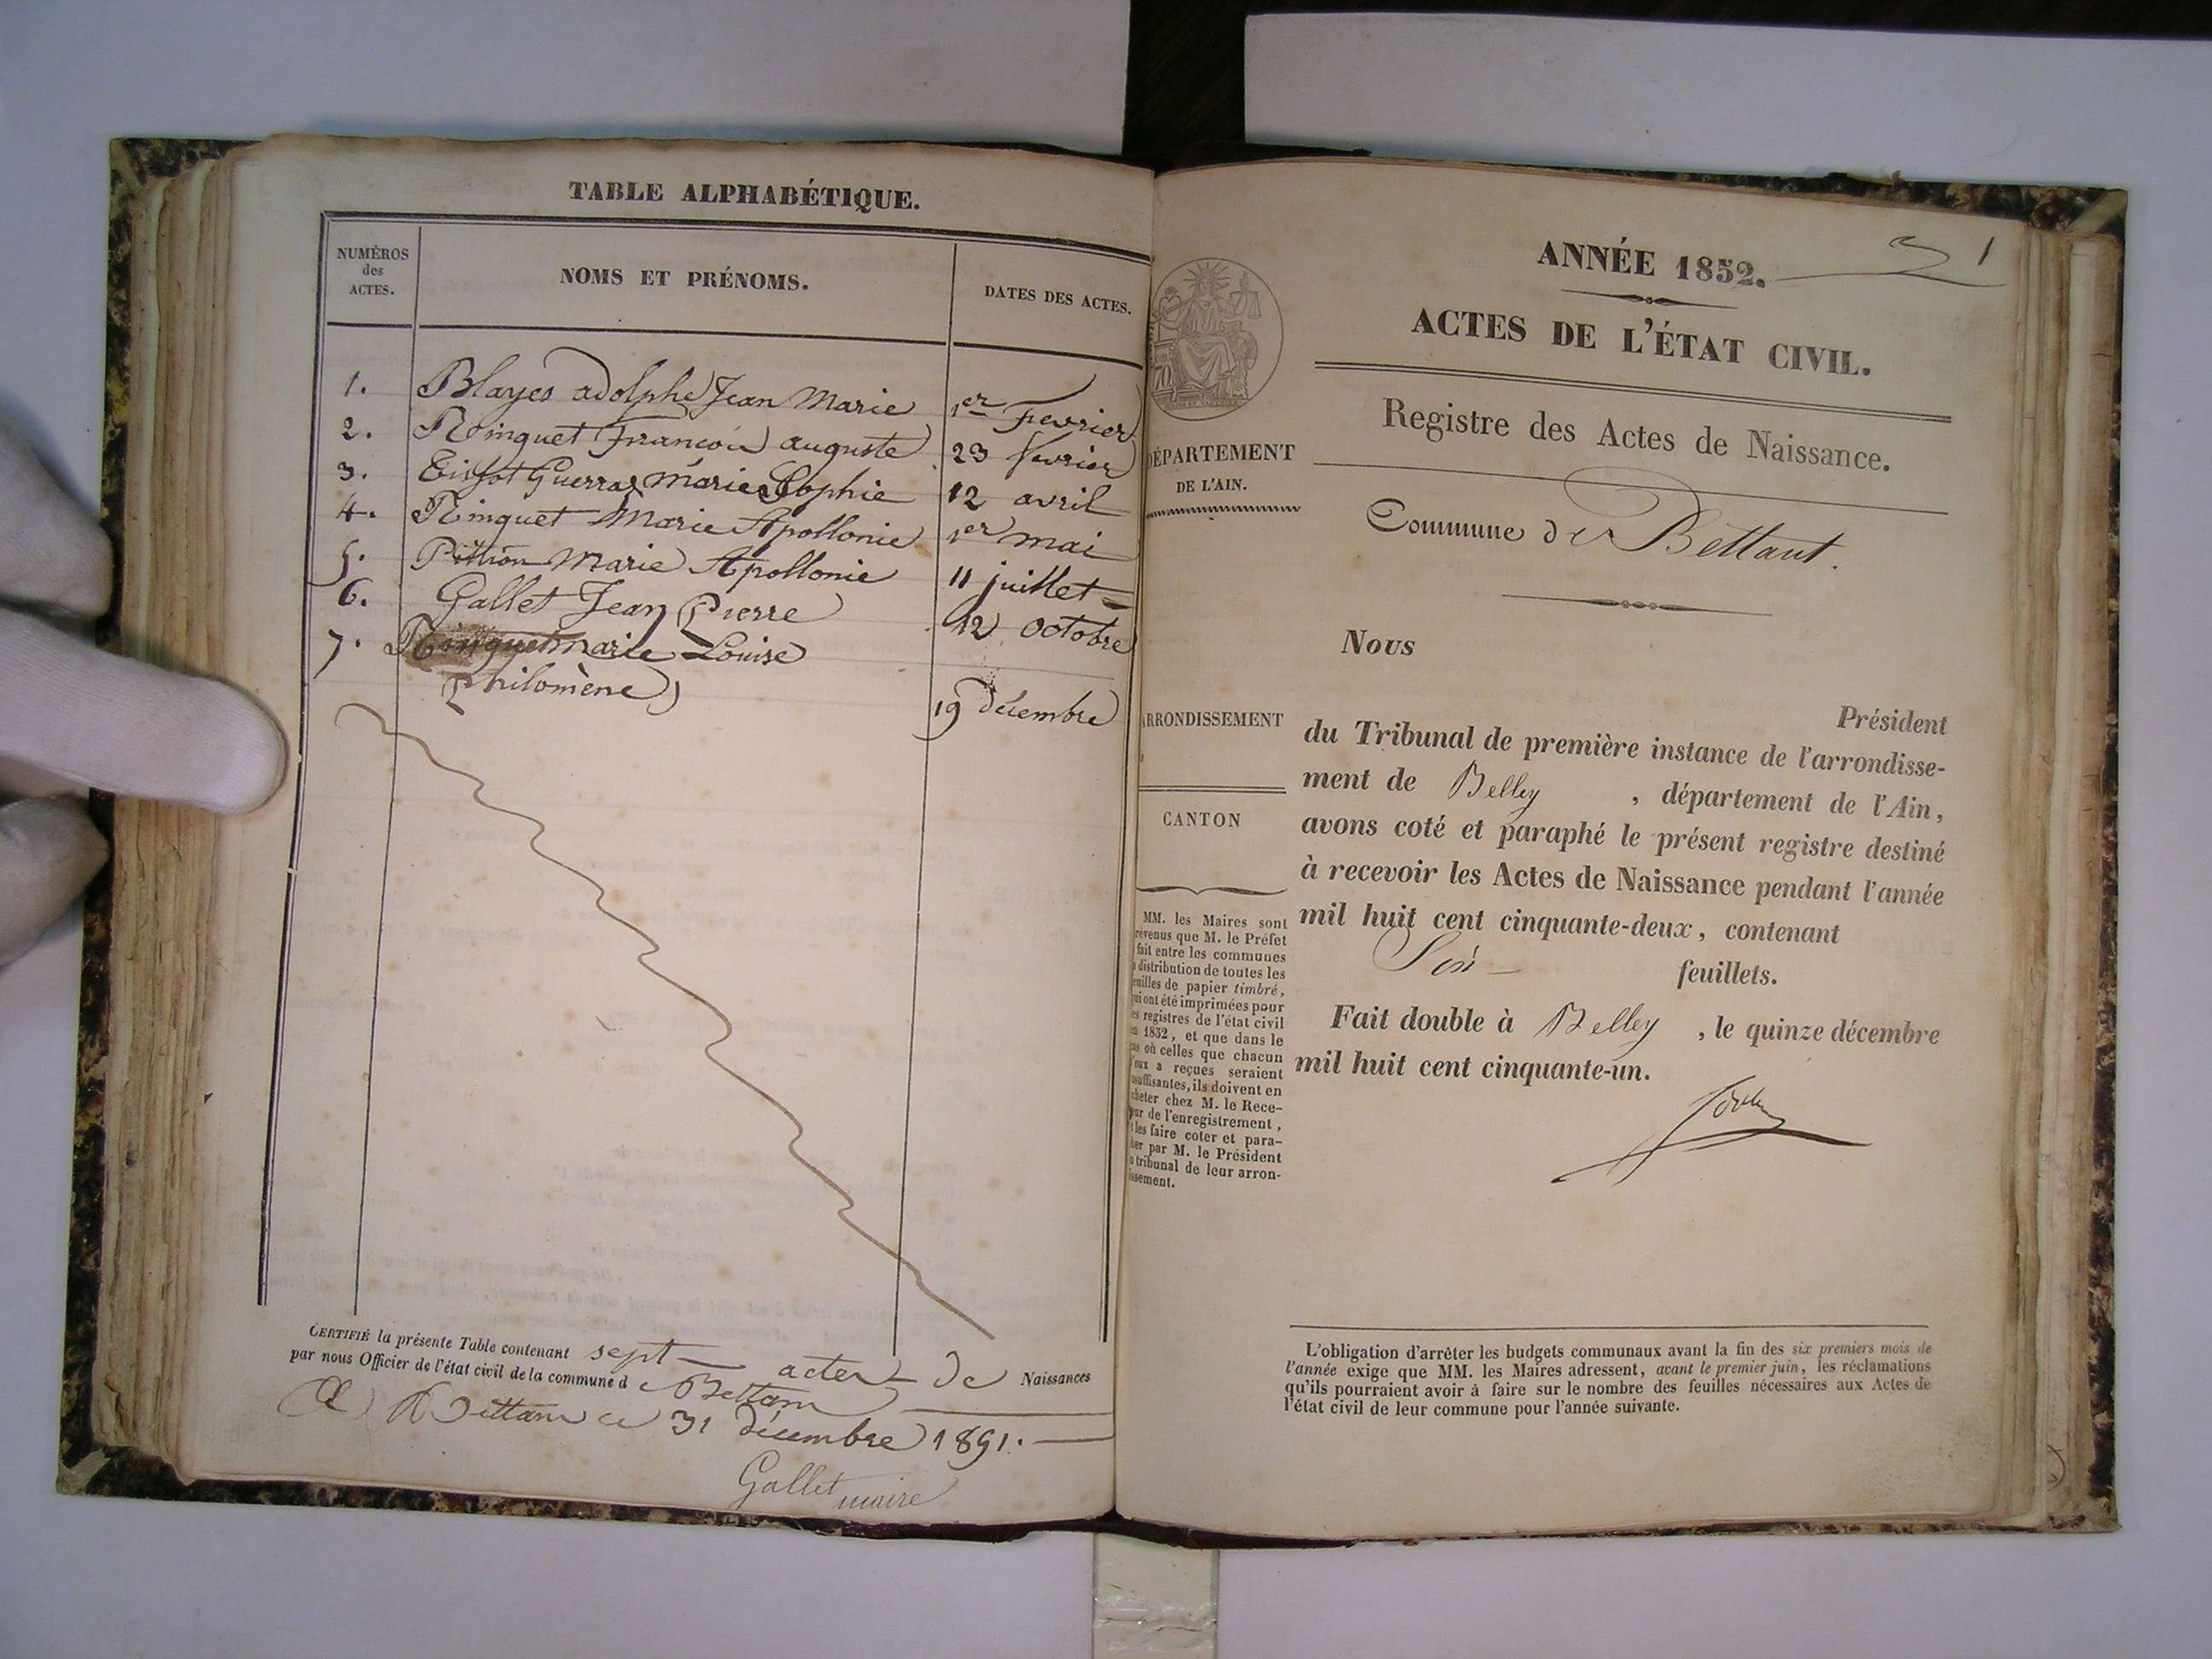 TABLE ALPHABÉTIQUE.
NUMÉROS
des
ACTES.
NOMS ET PRÉNOMS.
DATES DES ACTES.
1. Blayes adolphe Jean Marie 1er Fevrier
2. Ringuet François auguste 23 fevrier
3. Guerraz Marie Sophie 12 avril
4. Ringuet Marie Apollonie 1er mai
5. Pittion Marie Apollonie 11 juillet
6. Gallet Jean Pierre 12 octobre
7. Ringuet marie Louise
Philomène 19 décembre
CERTIFIÉ la présente Table contenant sept actes de Naissances
par nous Officier de l'état civil de la commune de Bettant
A Bettant ce 31 décembre 1851.
Gallet maire
ANNÉE 1852. 1
ACTES DE L'ÉTAT CIVIL.
Registre des Actes de Naissance.
Commune de Bettant.
DÉPARTEMENT
DE L'AIN.
ARRONDISSEMENT
CANTON
MM. les Maires sont
révenus que M. le Préfet
fait entre les communes
a distribution de toutes les
euilles de papier timbré,
ui ont été imprimées pour
es registres de l'état civil
en 1852, et que dans le
as où celles que chacun
d'eux a reçues seraient
nsuffisantes, ils doivent en
cheter chez M. le Rece-
eur de l'enregistrement,
t les faire coter et para-
her par M. le Président
u tribunal de leur arron-
issement.
Nous
Président
du Tribunal de première instance de l'arrondisse-
ment de Belley, département de l'Ain,
avons coté et paraphé le présent registre destiné
à recevoir les Actes de Naissance pendant l'année
mil huit cent cinquante-deux, contenant
Six feuillets.
Fait double à Belley, le quinze décembre
mil huit cent cinquante-un.
L'obligation d'arrêter les budgets communaux avant la fin des six premiers mois de
l'année exige que MM. les Maires adressent, avant le premier juin, les réclamations
qu'ils pourraient avoir à faire sur le nombre des feuilles nécessaires aux Actes de
l'état civil de leur commune pour l'année suivante.